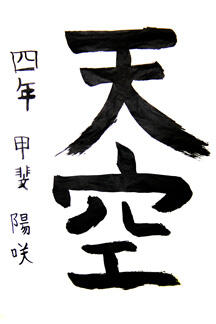 天空
四年 甲斐 陽咲